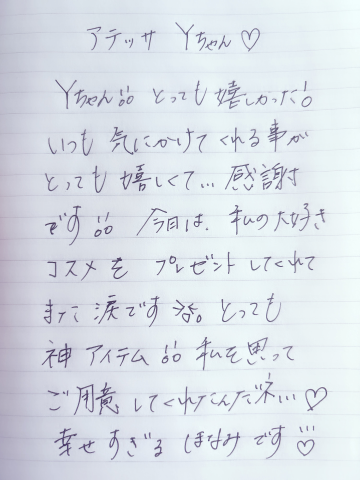 アテッサ Yちゃん♡
Yちゃん!! とっても嬉しかった!
いつも 気にかけてくれる事が
とっても 嬉しくて... 感謝
です!! 今日は、私の大好き
コスメを プレゼントしてくれて
また 涙です とっても
神アイテム!! 私を思って
ご用意してくれたんだネ... ♡
幸せすぎる ほなみです ♡